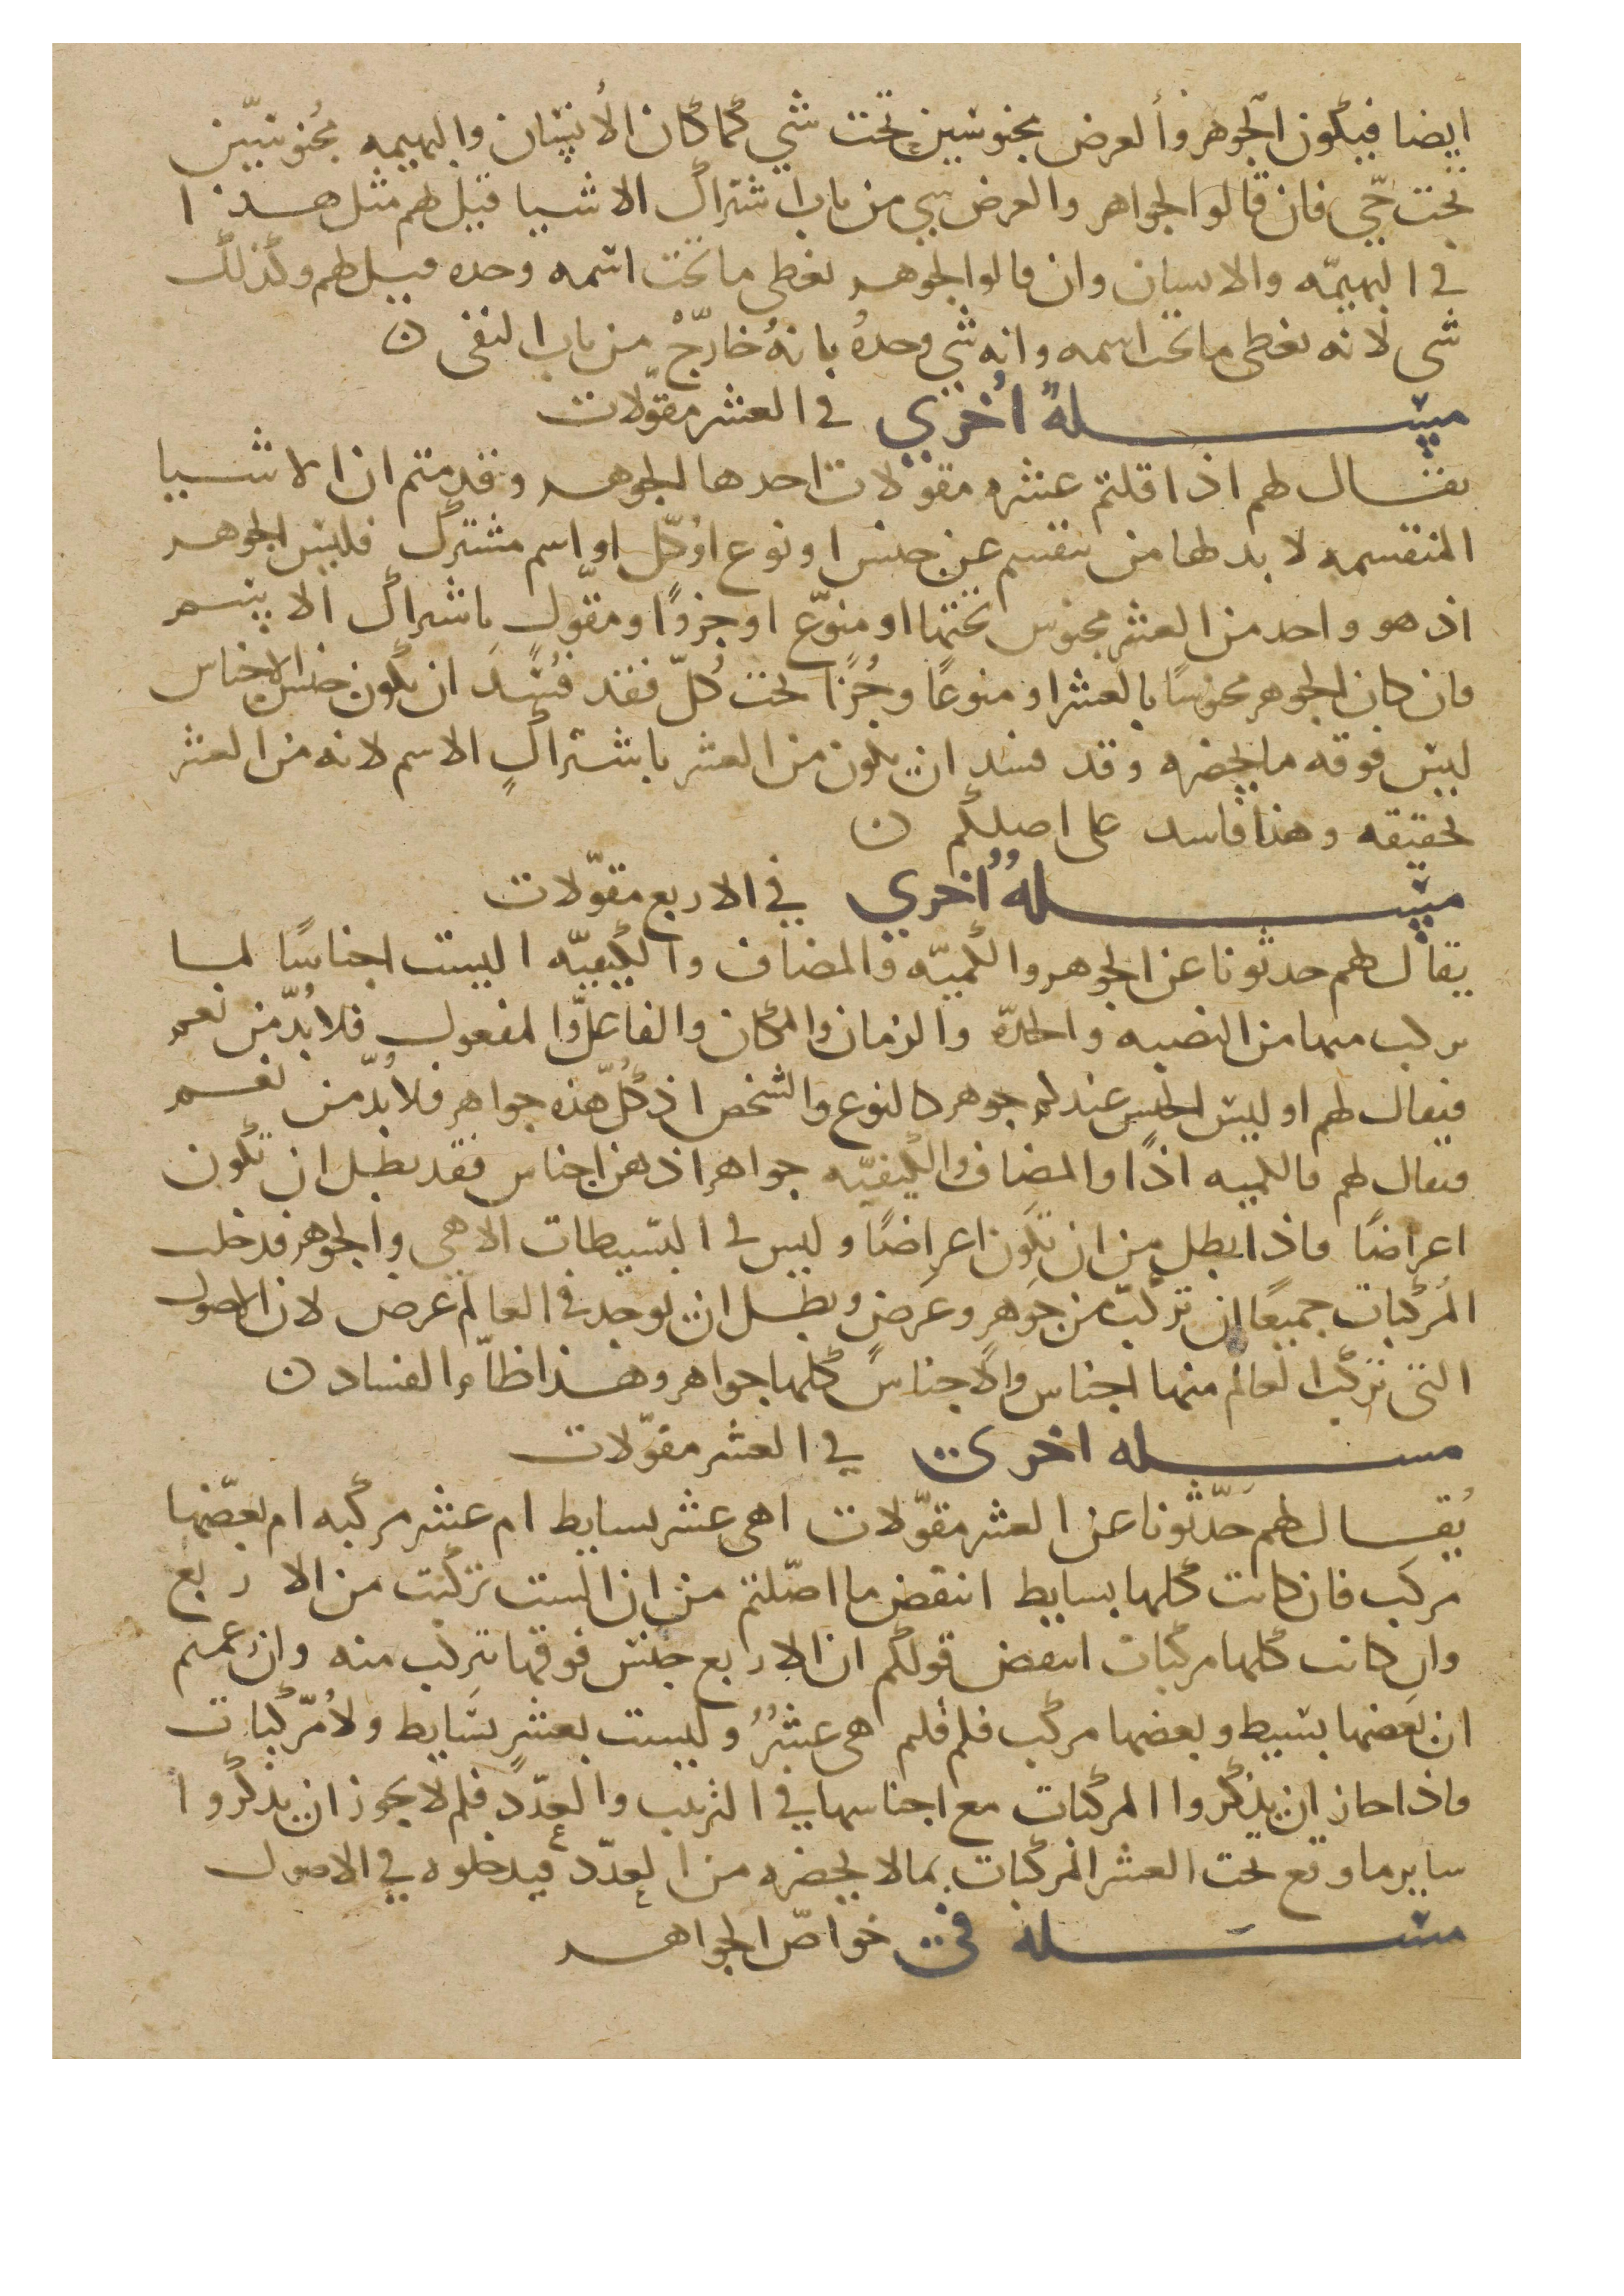 ايضا فيكون الجوهر والعرض مجنوسين تحت شي كما كان الانسان والبهيمه مجنوسين
تحت حي فان قالوا الجواهر والعرض شي من باب اشتراك الاشيا قيل لهم مثل هذا
في البهيمه والانسان وان قالوا الجوهر يعطي ما تحت اسمه وحده قيل لهم وكذلك
شي لانه يعطي ما تحت اسمه وانه شي وحده بانه خارج من باب النفي ن
مسله اخري في العشر مقولات
يقال لهم اذا قلتم عشره مقولات احدها الجوهر وقدمتم ان الاشيا
المنقسمه لا بد لها من تنقسم عن جنس او نوع او كل او اسم مشترك فليس الجوهر
اذ هو واحد من العشر مجنوس تحتها او منوع او جزوا ومقول باشراك الاسم
فان كان الجوهر مجنوسا بالعشر او منوعا وجزا تحت كل فقد فسد ان يكون جنس الاجناس
ليس فوقه ما يحضره وقد فسد ان يكون من العشر باشتراك الاسم لانه من العشر
بحقيقه وهذا فاسد على اصلكم ن
مسله اخري في الاربع مقولات
يقال لهم حدثونا عن الجوهر والكميه والمضاف والكيفيه اليست اجناسا لما
يركب منها من النصبه والجده والزمان والمكان والفاعل والمفعول فلا بد من نعم
فيقال لهم او ليس الجنس عندكم جوهر كالنوع والشخص اذ كل هذه جواهر فلا بد من نعم
فيقال لهم فالكميه اذا والمضاف والكيفيه جواهر اذ هن اجناس فقد بطل ان تكون
اعراضا فاذا بطل من ان تكون اعراضا وليس في البسيطات الا هي والجوهر فدخلت
المركبات جميعا ان تركبت من جوهر وعرض وبطل ان يوجد في العالم عرض لان الاصول
التي تركب العالم منها اجناس والاجناس كلها جواهر وهذا ظاهر الفساد ن
مسله اخري في العشر مقولات
يقال لهم حدثونا عن العشر مقولات اهي عشر بسايط ام عشر مركبه ام بعضها
مركب فان كانت كلها بسايط انتقض ما اصلتم من ان الست تركبت من الاربع
وان كانت كلها مركبات انتقض قولكم ان الاربع جنس فوقها تتركب منه وان زعمتم
ان بعضها بسيط وبعضها مركب فلم قلتم هي عشر وليست بعشر بسايط ولا مركبات
فاذا جاز ان يذكروا المركبات مع اجناسها في الترتيب والعدد فلم لا يجوز ان يذكروا
ساير ما وقع تحت العشر المركبات بما لا يحضره من العدد فيدخلوه في الاصول
مسله في خواص الجواهر